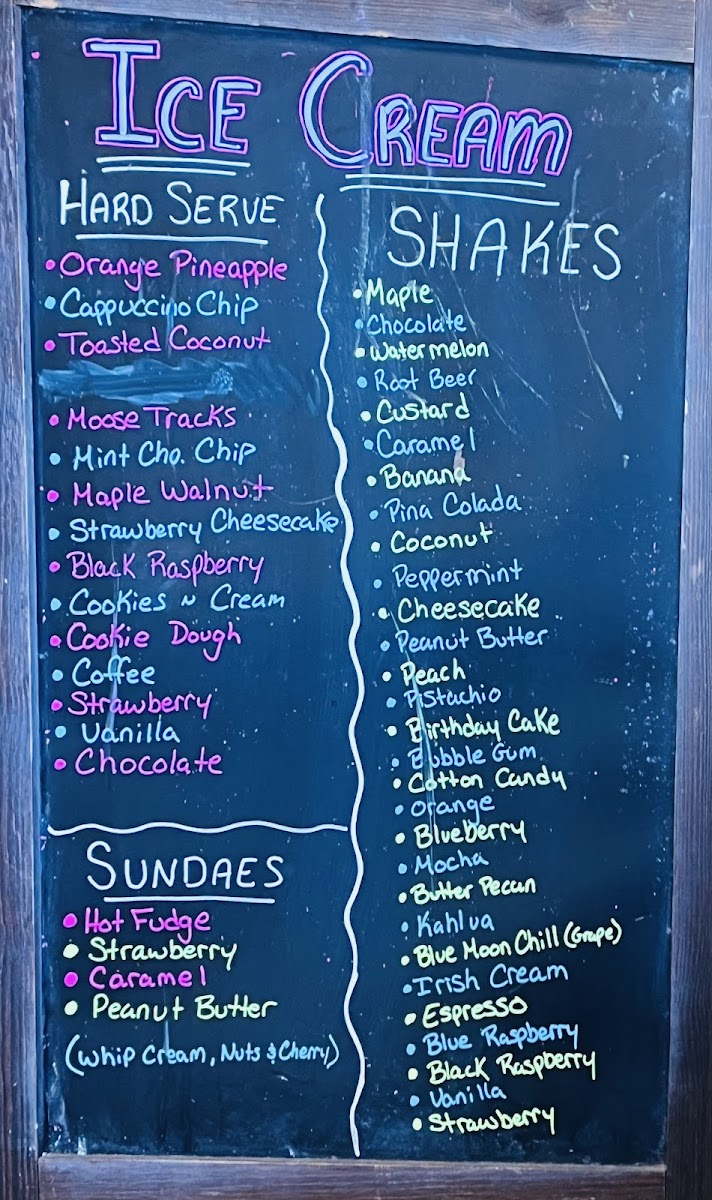 ICE CREAM
HARD SERVE
• Orange Pineapple
• Cappuccino Chip
• Toasted Coconut
• Moose Tracks
• Mint Cho. Chip
• Maple Walnut
• Strawberry Cheesecake
• Black Raspberry
• Cookies n Cream
• Cookie Dough
• Coffee
• Strawberry
• Vanilla
• Chocolate
SUNDAES
• Hot Fudge
• Strawberry
• Caramel
• Peanut Butter
(Whip Cream, Nuts & Cherry)
SHAKES
• Maple
• Chocolate
• Watermelon
• Root Beer
• Custard
• Caramel
• Banana
• Pina Colada
• Coconut
• Peppermint
• Cheesecake
• Peanut Butter
• Peach
• Pistachio
• Birthday Cake
• Bubble Gum
• Cotton Candy
• Orange
• Blueberry
• Mocha
• Butter Pecan
• Kahlua
• Blue Moon Chill (Grape)
• Irish Cream
• Espresso
• Blue Raspberry
• Black Raspberry
• Vanilla
• Strawberry